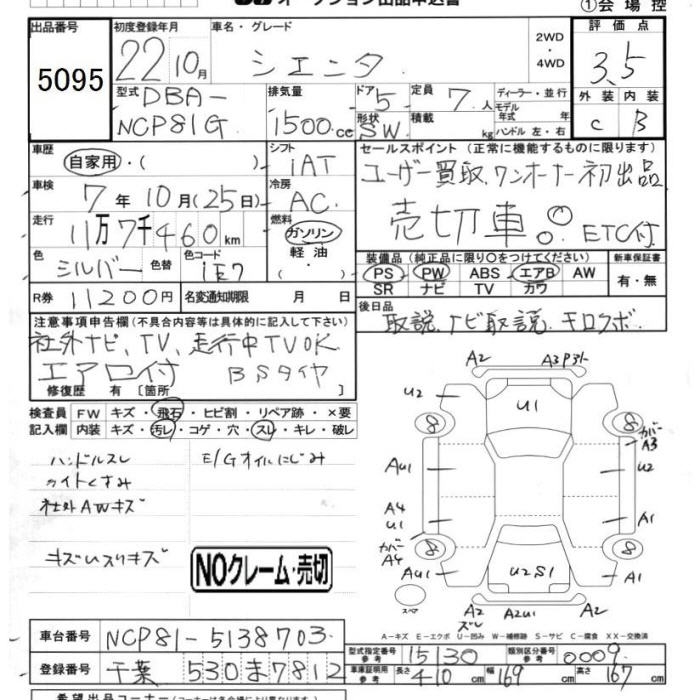 オークション出品申込書
①会場控
出品番号 5095
初度登録年月 22 10月
車名・グレード シエンタ
2WD・4WD
評価点 3.5
外装 C 内装 B
型式 DBA-NCP81G
排気量 1500cc
ドア 5 形状 SW
定員 7人 積載 kg
ディーラー・並行
モデル年式 年
ハンドル 左・右
車歴 自家用・( )
シフト iAT
セールスポイント (正常に機能するものに限ります)
ユーザー買取、ワンオーナー初出品
売切車。◎ ETC付
車検 7年10月(25日)
冷房 AC
走行 11万7千460km
燃料 ガソリン・軽油・( )
色 シルバー 色替
色コード 1E7
装備品 (純正品に限り○をつけてください)
PS PW ABS エアB AW
SR ナビ TV カワ
新車保証書 有・無
R券 11200円
名変通知期限 月 日
後日品 取説、ナビ取説、キロクボ.
注意事項申告欄 (不具合内容等は具体的に記入して下さい)
社外ナビ、TV、走行中TVOK
エアロ付 BSタイヤ
修復歴 有 [箇所 ]
検査員記入欄
FW キズ・飛石・ヒビ割・リペア跡・×要
内装 キズ・汚レ・コゲ・穴・スレ・キレ・破レ
ハンドルスレ E/Gオイルにじみ
ライトくすみ
社外AWキズ
キズUスリキズ
NOクレーム・売切
A2 A3P3ト
U2 U1
8 8 カバーA3
AU1 U2
A4 U1 A1
カバーA4 8 8
AU1 U2S1 A1
スペア
A2ズレ A2U1 A2
A-キズ E-エクボ U-凹み W-補修跡 S-サビ C-腐食 XX-交換済
車台番号 NCP81-5138703
登録番号 千葉 530 ま 7812
型式指定番号 参考 15130
類別区分番号 参考 0009
車庫証明用 参考 長さ 410cm 幅 169cm 高さ 167cm
希望出品コーナー